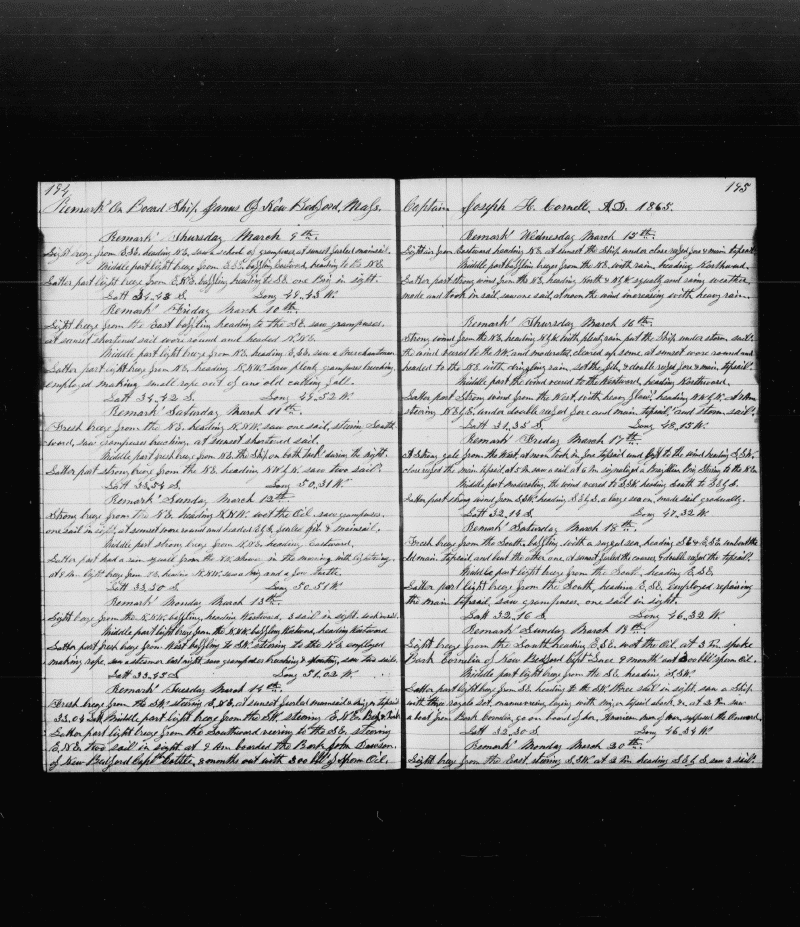 194
Remark's On Board Ship Janus Of New Bedford, Mass.
Remark's Thursday March 9th.
Light breeze from E.S.E. heading N.E. saw a school of grampuses at sunset furled mainsail.
Middle part light breeze from E.S.E. baffling Eastward, heading to the N.E.
Latter part light breeze from E.N.E. baffling heading to S.E. one Brig in sight.
Latt 34.48 S. Long 49.43 W.
Remark's Friday March 10th.
Light breeze from the East baffling heading to the S.E. saw grampuses,
at sunset shortened sail wore round and headed N.N.E.
Middle part light breeze from N.E. heading E.S.E. saw a Merchantman
Latter part light breeze from N.E. heading N.N.W. saw plenty grampuses breeching
employed making small rope out of an old cutting fall.
Latt 34.42 S. Long 49.52 W.
Remark's Saturday March 11th.
Fresh breeze from the N.E. heading N.N.W. saw one sail, steering South
ward, saw grampuses breeching, at sunset shortened sail.
Middle part fresh breeze from N.E. the Ship on both tack's during the night.
Latter part strong breeze from the N.E. heading N.W.by N. saw two sail.
Latt 33.54 S. Long 50.31 W.
Remark's Sunday March 12th.
Strong breeze from the N.E. heading N.N.W. wet the Oil. saw grampuses.
one sail in sight, at sunset wore round and headed E.by S. furled jib & mainsail.
Middle part strong breeze from N.E. heading Eastward.
Latter part had a rain squall from the in the morning with lightning,
at 8 Am light breeze from N.E. heading N.N.W. saw a and a few turtle
Latt 33.30 S. Long 50.51 W.
Remark's Monday March 13th.
Light breeze from the N.N.W. baffling, heading Westward, 3 sail in sight.
Middle part light breeze from the N.N.W. baffling Westward, heading Westward
Latter part fresh breeze from West baffling to S.W. steering to the N.E. employed
making rope, saw a steamer last night, saw grampuses breeching & spouting, saw two sails.
Latt 33.45 S. Long 51.02 W.
Remark's Tuesday March 14th.
Fresh breeze from the S.W. steering E.N.E. at sunset furled mainsail & topsail
33.04 Latt. Middle part light breeze from the S.W. steering E.N.E.
Latter part light breeze from the Southward veering to the S.E. steering
E.N.E. two sail in sight at 9 Am boarded the Bark John Dawson.
of New Bedford Captn Cottle, 8 months out with 300 bbl of Sperm Oil.
195
Captain Joseph H. Cornell, A.D. 1865.
Remark's Wednesday March 15th.
Light air from Eastward heading N.E. at sunset the Ship under close reefed fore & main topsail.
Middle part baffling breeze from the N.E. with rain, heading Northward.
Latter part strong wind from the N.E. heading North & N.by W. squaly and rainy weather,
made and took in sail, saw one sail, at noon the wind increasing with heavy rain.
Remark's Thursday March 16th.
Strong wind from the N.E. heading N.by W. with plenty rain put the Ship under storm sail.
the wind veared to the N.W. and moderated, cleared up some at sunset wore round and
headed to the N.E. with drizzling rain, set the jib, & double reefed fore & main topsail.
Middle part the wind veared to the Westward, heading Northward.
Latter part strong wind from the West, with heavy heading N.W.by N. at
steering N.E.by E. under double reefed fore and main topsail, and storm sail.
Latt 31.35 S. Long 48.15 W.
Remark's Friday March 17th.
A Strong gale from the West at noon, took in fore topsail and luff to the wind heading S.S.W.
close reefed the main topsail, at saw a sail, at 6 Pm signalized a Brazilian Brig steering to the N.
Middle part moderating, the wind veered to S.S.W. heading South to S.E.by E.
Latter part strong wind from S.S.W. heading S.E.by S. a large sea on, made sail gradually.
Latt 32.14 S. Long 47.32 W.
Remark's Saturday March 18th.
Fresh breeze from the South. baffling with a ruged sea, heading S.E. & E.S.E. unbent the
Old main topsail and bent the other one. at sunset furled the courses, & double reefed the topsail.
Middle part light breeze from the South, heading E.S.E.
Latter part light breeze from the South, heading E.S.E. Employed repairing
the main topsail, saw grampuses, one sail in sight.
Latt 32.16 S. Long 46.32 W.
Remark's Sunday March 19th.
Light breeze from the South heading E.S.E. wet the Oil. at 3 Pm. spoke
Bark Cornelia of New Bedford Captn 9 month out 300 bbl Sperm Oil.
Middle part light breeze from the S.E. heading S.S.W.
Latter part light breeze from S.E. heading to the S.W. three sail in sight, saw a Ship
with three royals set, maneuvering, laying with aback, &c. at 2 Pm saw
a boat from Bark Cornelia go on board of her, American man of war, suppose the Onward.
Latt 32.30 S. Long 46.34 W.
Remark's Monday March 20th.
Light breeze from the East steering S.S.W. at 2 Pm heading S.E.by S. saw 2 sail.